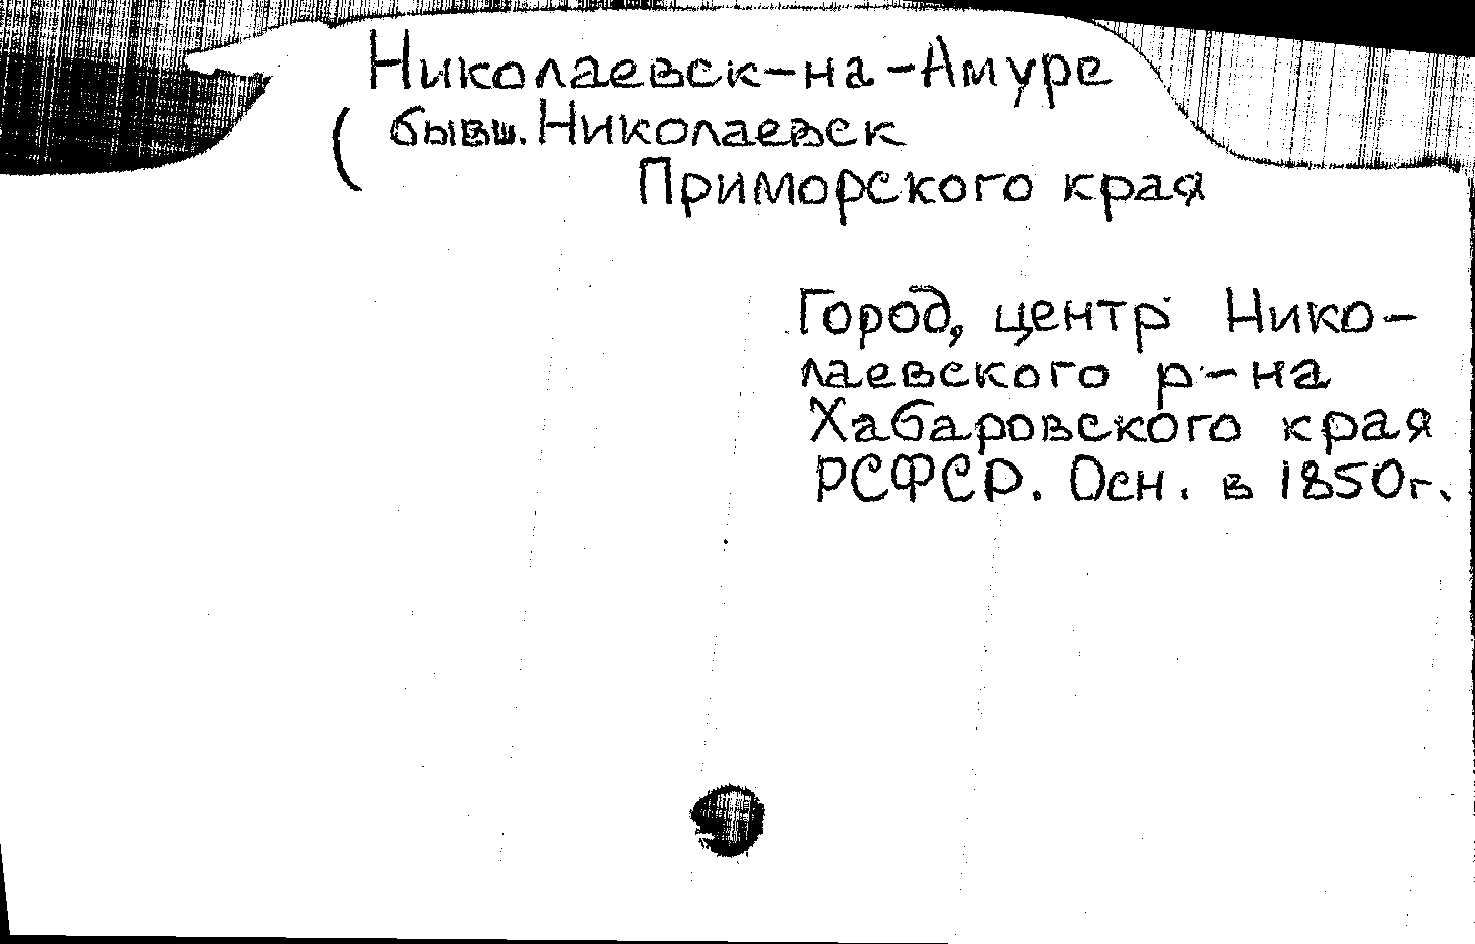 Николаевск-на-Амуре
( бывш. Николаевск
Приморского края
Город, центр Нико-
лаевского р-на
Хабаровского края
РСФСР. Осн. в 1850г.